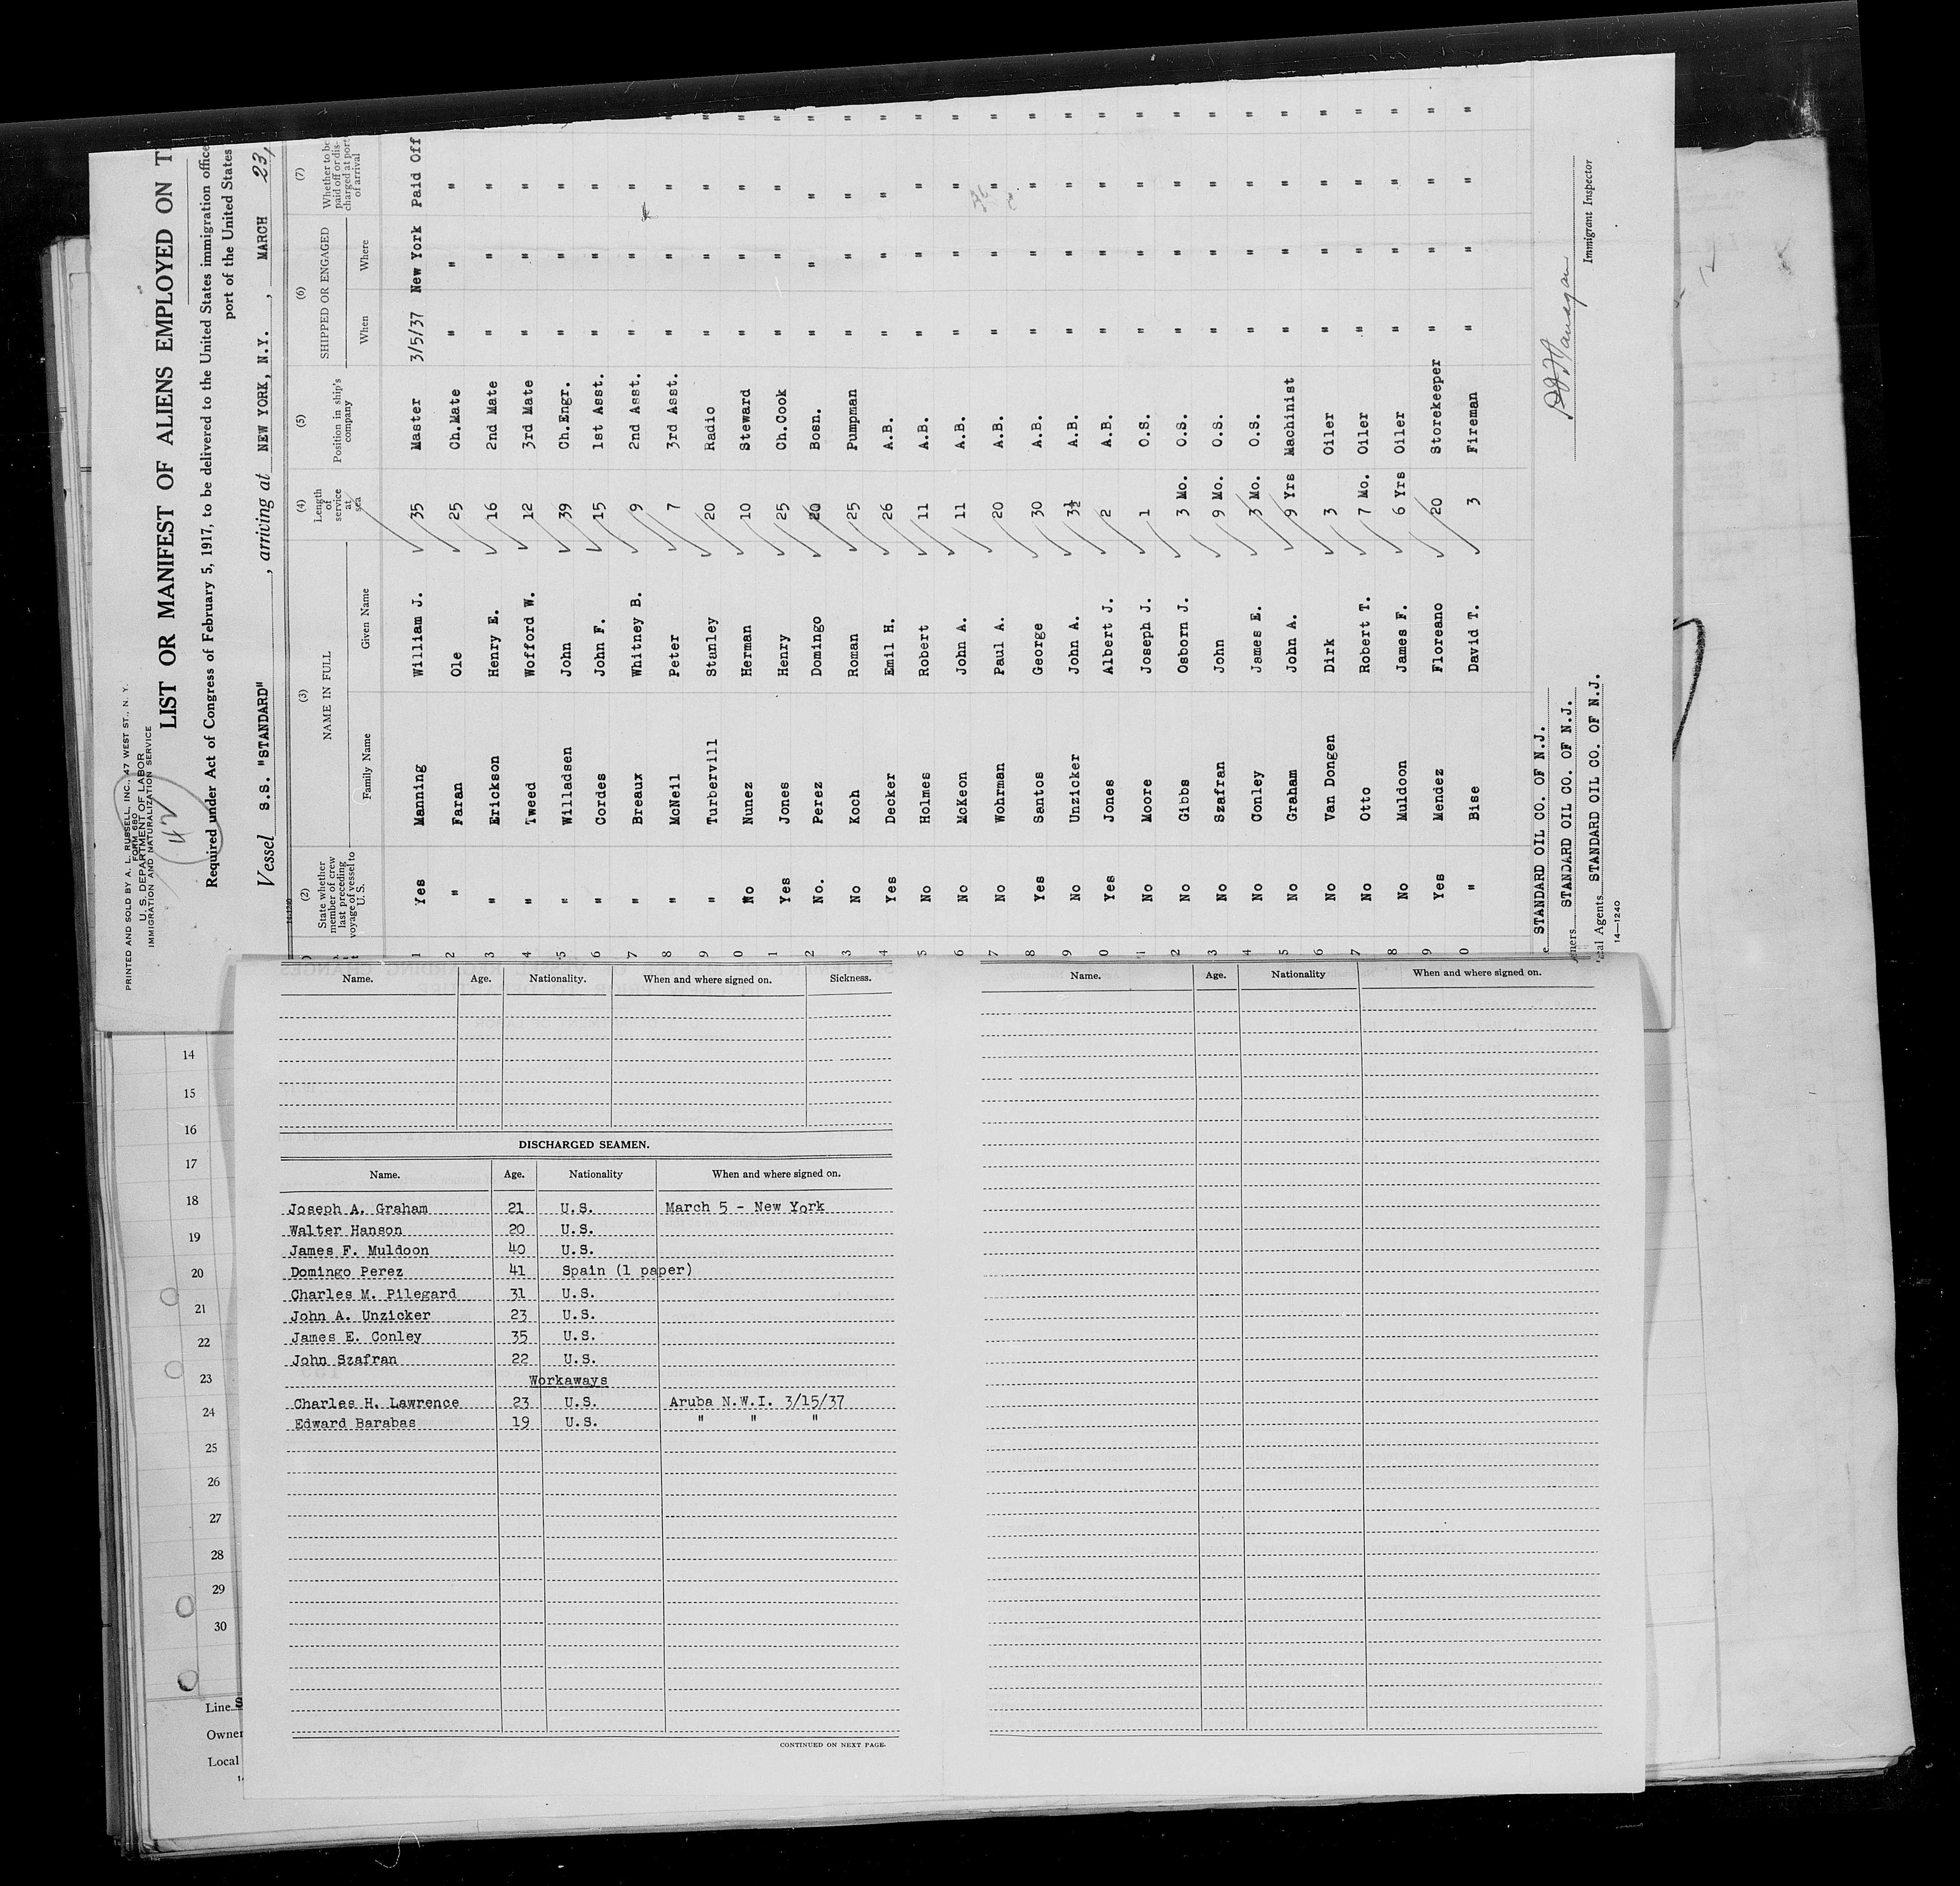 PRINTED AND SOLD BY A. L. RUSSELL, INC., 47 WEST ST., N. Y.
FORM 680
U. S. DEPARTMENT OF LABOR
IMMIGRATION AND NATURALIZATION SERVICE
42
LIST OR MANIFEST OF ALIENS EMPLOYED ON
Required under Act of Congress of February 5, 1917, to be delivered to the United States immigration
port of the United States
Vessel S.S. "STANDARD", arriving at NEW YORK, N.Y., MARCH 23,
14-1240
(2) (3) (4) (5) (6) (7)
State whether member of crew last preceding voyage of vessel to U.S. NAME IN FULL Length of service at sea Position in ship's company SHIPPED OR ENGAGED Whether to be paid off or discharged at port of arrival
Family Name Given Name When Where
1 Yes Manning William J. 35 Master 3/5/37 New York Paid Off
2 " Faran Ole 25 Ch.Mate " " "
3 " Erickson Henry E. 16 2nd Mate " " "
4 " Tweed Wofford W. 12 3rd Mate " " "
5 " Willadsen John 39 Ch.Engr. " " "
6 " Cordes John F. 15 1st Asst. " " "
7 " Breaux Whitney B. 9 2nd Asst. " " "
8 " McNeil Peter 7 3rd Asst. " " " "
9 " Turbervill Stanley 20 Radio " " " "
0 No Nunez Herman 10 Steward " " " "
1 Yes Jones Henry 25 Ch.Cook " " " "
2 No. Perez Domingo 20 Bosn. " " " "
3 No Koch Roman 25 Pumpman " " " "
4 Yes Decker Emil H. 26 A.B. " " " "
5 No Holmes Robert 11 A.B. " " " "
6 No McKeon John A. 11 A.B. " " " "
7 No Wohrman Paul A. 20 A.B. " " " "
8 Yes Santos George 30 A.B. " " " "
9 No Unzicker John A. 3½ A.B. " " " "
0 Yes Jones Albert J. 2 A.B. " " " "
1 No Moore Joseph J. 1 O.S. " " " "
2 No Gibbs Osborn J. 3 Mo. O.S. " " " "
3 No Szafran John 9 Mo. O.S. " " " "
4 No Conley James E. 3 Mo. O.S. " " " "
5 No Graham John A. 9 Yrs Machinist " " " "
6 No Van Dongen Dirk 3 Oiler " " " "
7 No Otto Robert T. 7 Mo. Oiler " " " "
8 No Muldoon James F. 6 Yrs Oiler " " " "
9 Yes Mendez Floreano 20 Storekeeper " " " "
0 " Bise David T. 3 Fireman " " " "
STANDARD OIL CO. OF N.J.
STANDARD OIL CO. OF N.J.
Agents STANDARD OIL CO. OF N.J.
14—1240
Immigrant Inspector
Name. Age. Nationality. When and where signed on. Sickness.
DISCHARGED SEAMEN.
Name. Age. Nationality When and where signed on.
Joseph A. Graham 21 U.S. March 5 - New York
Walter Hanson 20 U.S.
James F. Muldoon 40 U.S.
Domingo Perez 41 Spain (1 paper)
Charles M. Pilegard 31 U.S.
John A. Unzicker 23 U.S.
James E. Conley 35 U.S.
John Szafran 22 U.S.
Workaways
Charles H. Lawrence 23 U.S. Aruba N.W.I. 3/15/37
Edward Barabas 19 U.S. " " "
CONTINUED ON NEXT PAGE.
Name. Age. Nationality When and where signed on.
14
15
16
17
18
19
20
21
22
23
24
25
26
27
28
29
30
Line S
Owner
Local